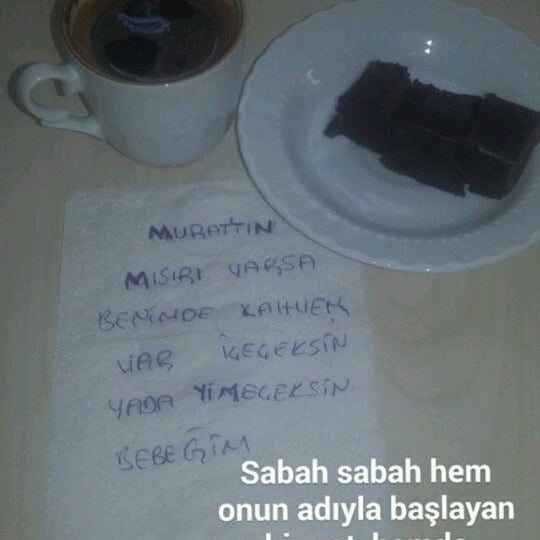 MURATTIN
MISIRI VARSA
BENİNDE KAHVEM
VAR İÇEÇEKSİN
YADA YİMEÇEKSİN
BEBEĞİM
Sabah sabah hem
onun adıyla başlayan